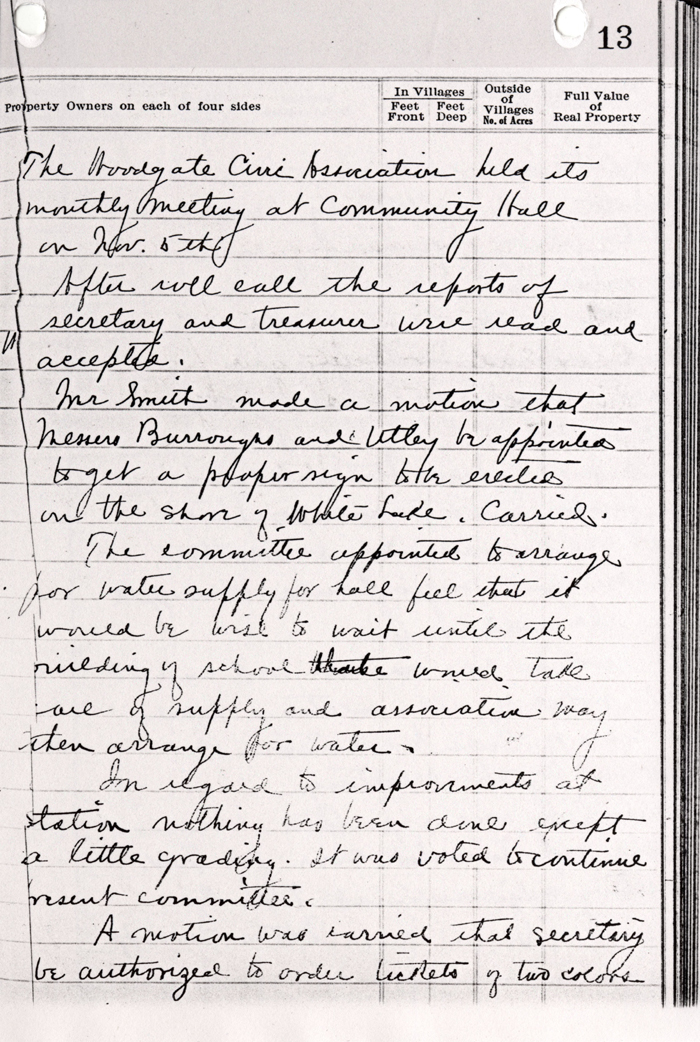 13
Property Owners on each of four sides
In Villages
Feet Front
Feet Deep
Outside of Villages No. of Acres
Full Value of Real Property
The Woodgate Civic Association held its
monthly meeting at Community Hall
on Nov. 5th
After roll call the reports of
secretary and treasurer were read and
accepted.
Mr Smith made a motion that
Messers Burroughs and Utley be appointed
to get a proper sign to be erected
on the shore of White Lake. Carried.
The committee appointed to arrange
for water supply for hall feel that it
would be wise to wait until the
building of school would take
care of supply and association may
then arrange for water.
In regard to improvments at
station nothing has been done except
a little grading. It was voted to continue
resent committee.
A motion was carried that secretary
be authorized to order tickets of two colors